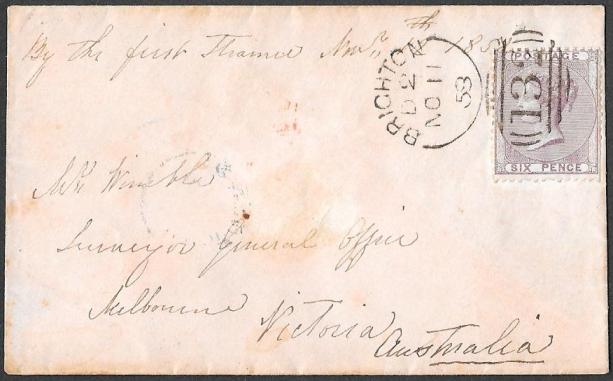 By the first Steamer Nov. 11th 185
BRIGHTON
D 2
NO 11
58
132
POSTAGE
SIX PENCE
Mr. Wimble
Surveyor General Office
Melbourne
Victoria
Australia